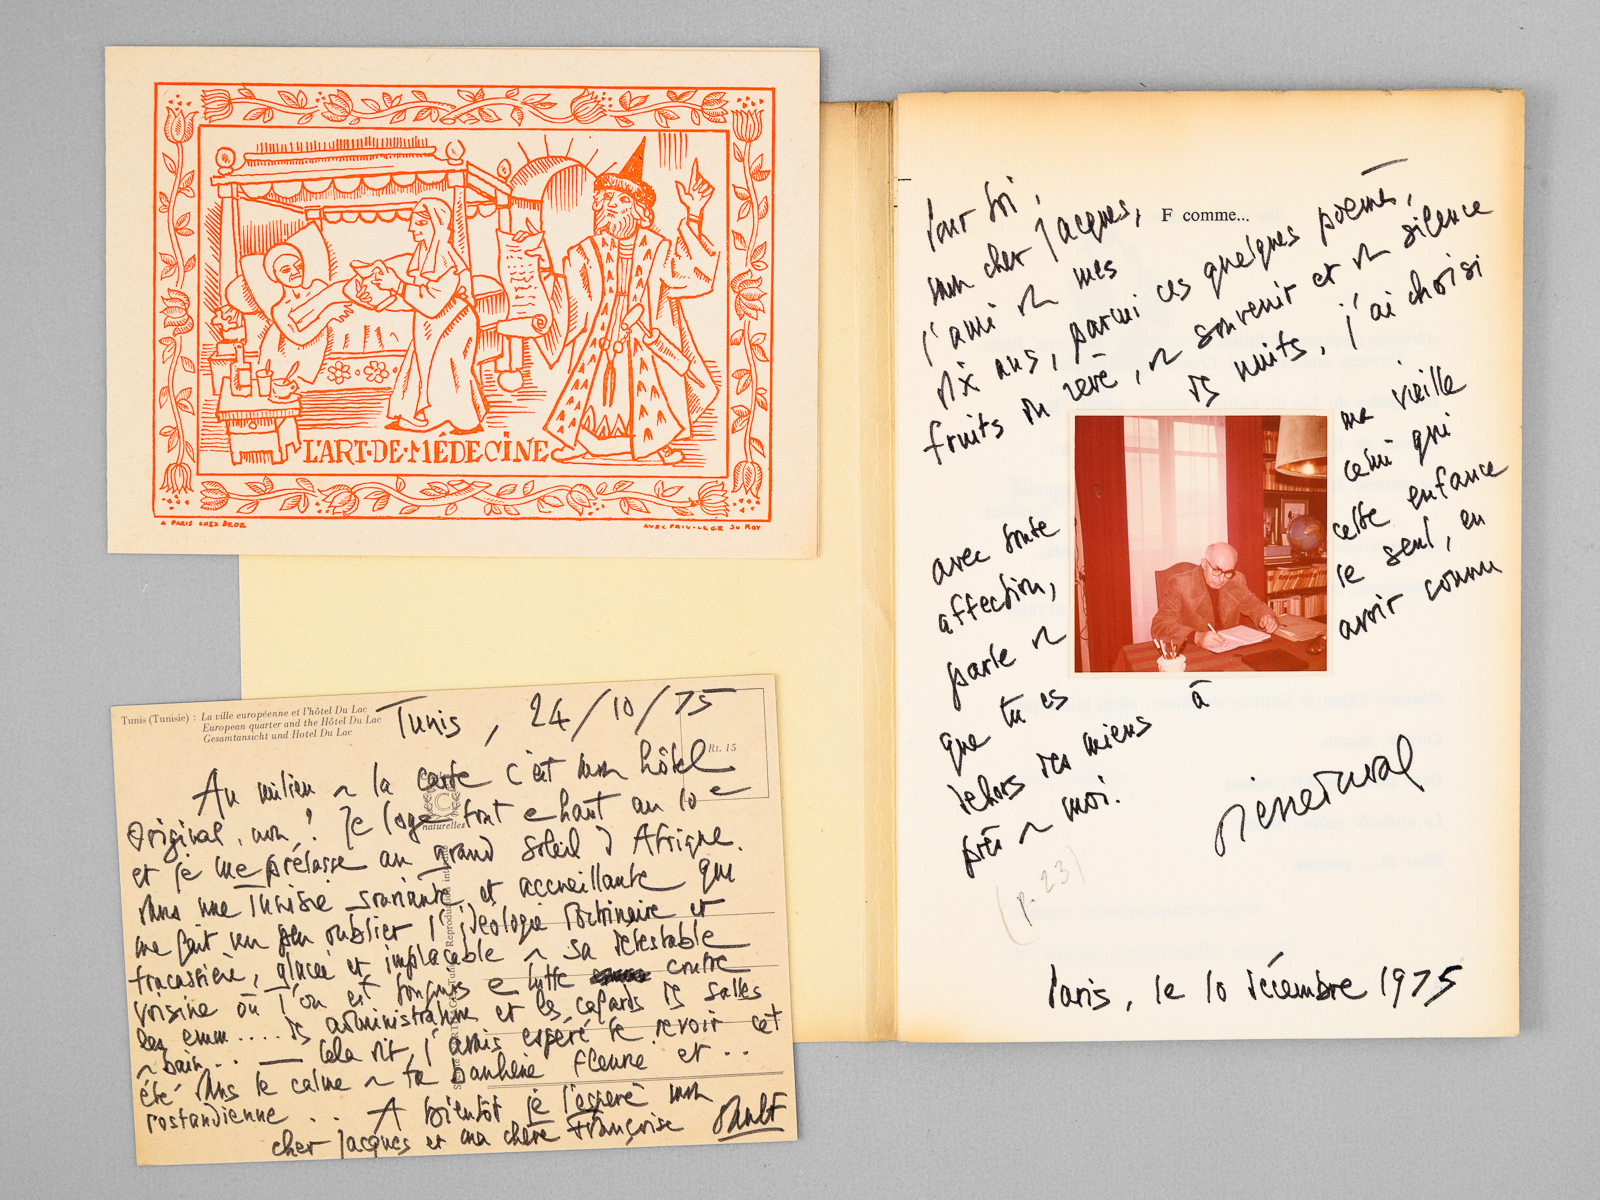 L'ART·DE·MÉDECINE
A PARIS CHEZ
AVEC PRIVILEGE DU ROY
Tunis (Tunisie) : La ville européenne et l'hôtel Du Lac
European quarter and the Hôtel Du Lac
Gesamtansicht und Hotel Du Lac
Rt. 15
naturelles
Tunis, 24/10/75
Au milieu de la carte c'est mon hôtel
Original, non ? Je loge tout en haut au 10e
et je me prélasse au grand soleil d'Afrique.
dans une Tunisie souriante et accueillante qui
me fait un peu oublier l'idéologie doctrinaire et
tracassière, glacée et implacable de sa détestable
voisine où l'on est toujours en lutte contre
les emm.... des administrations et les cafards des salles
de bain... — Cela dit, j'avais espéré te revoir cet
été dans le calme de ta banlieue fleurie et ..
rostandienne ... A bientôt je l'espère mon
cher Jacques et ma chère Françoise
F comme...
Pour toi,
mon cher Jacques,
l'ami de mes
dix ans, parmi ces quelques poèmes,
fruits du rêve, du souvenir et du silence
des nuits, j'ai choisi
ma vieille
celui qui
avec toute
cette enfance
affection,
le seul, en
parle de
avoir connu
que tu es
à
dehors des miens
près de moi.
(p. 23)
Paris, le 10 décembre 1975